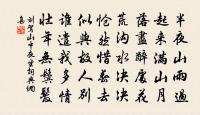 半夜山雨過
起來滿山月
落盡醉處花
荒溝水決決
愴然惜春去
似與故人別
誰遣我多情
壯年無鬢髮
劉駕山中夜坐詞典網
集